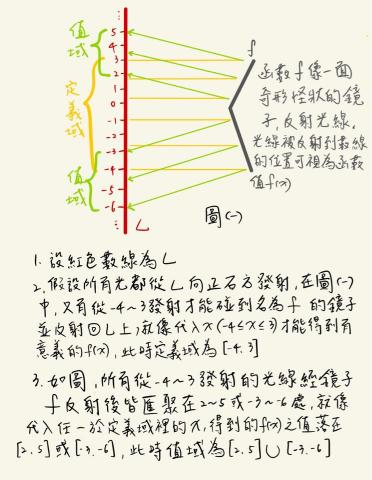 ⋮
5
4
3
2
1
0
-1
-2
-3
-4
-5
-6
⋮
值域
定義域
值域
L
f
函數f像一面
奇形怪狀的鏡
子,反射光線,
光線被反射到數線
的位置可視為函數
值f(x)
圖(一)
1. 設紅色數線為L
2. 假設所有光都從L向正右方發射,在圖(一)
中,只有從-4~3發射才能碰到名為f的鏡子
並反射回L上,就像代入x(-4≤x≤3)才能得到有
意義的f(x),此時定義域為[-4,3]
3. 如圖,所有從-4~3發射的光線經鏡子
f反射後皆匯聚在2~5或-3~-6處,就像
代入任一於定義域裡的x,得到的f(x)之值落在
[2,5]或[-3,-6],此時值域為[2,5]∪[-3,-6]